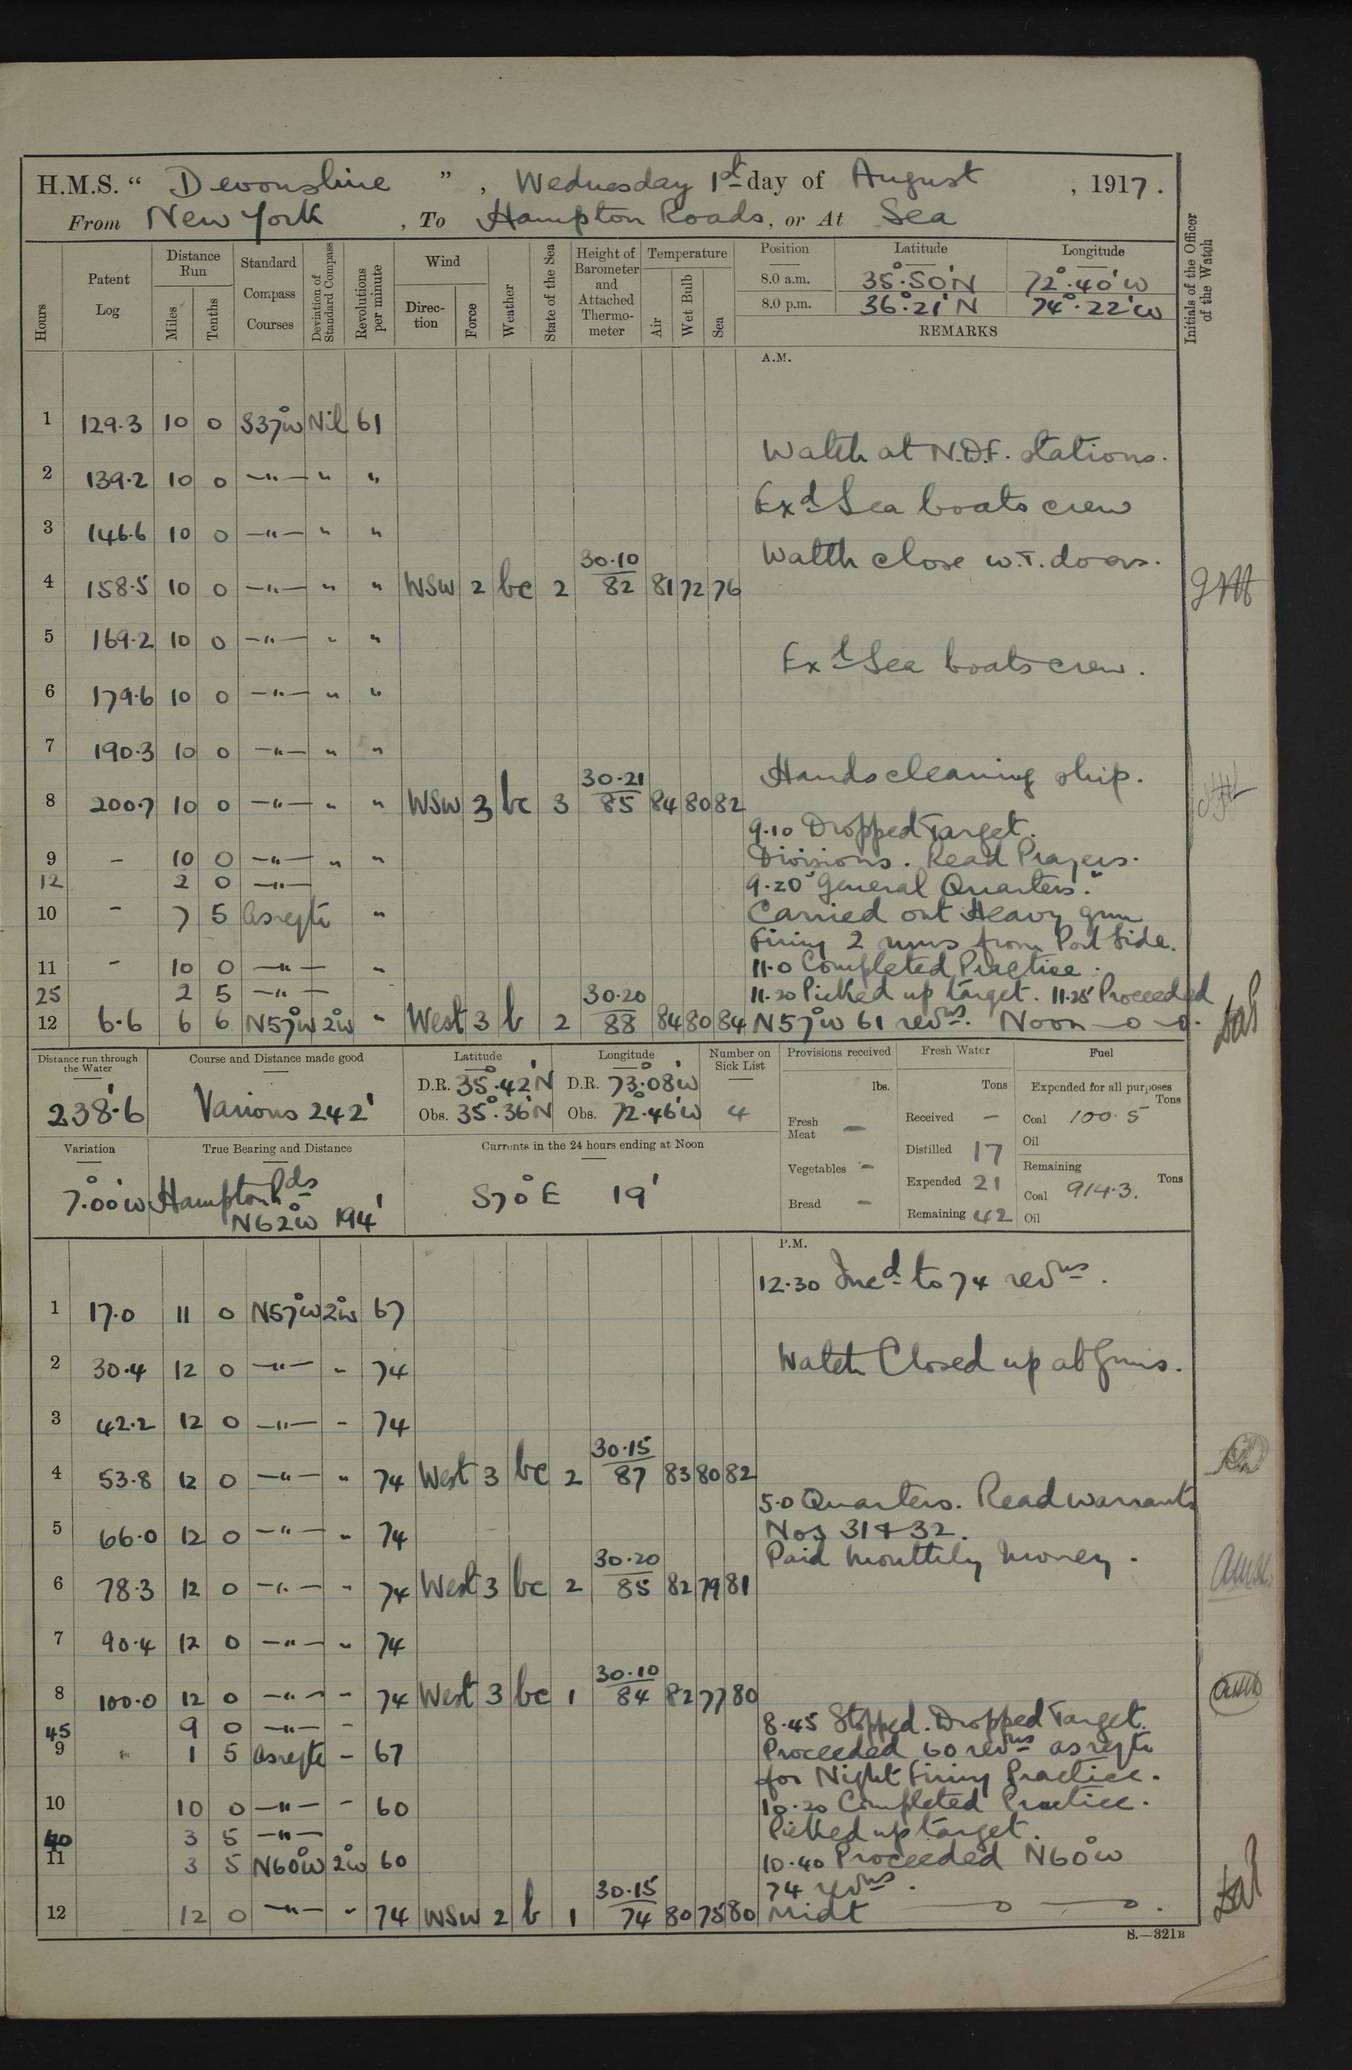 H.M.S. “ Devonshire ” , Wednesday 1st day of August , 1917.
From New York , To Hampton Roads, or At Sea
Hours
Patent Log
Distance Run
Miles
Tenths
Standard Compass Courses
Deviation of Standard Compass
Revolutions per minute
Wind
Direction
Force
Weather
State of the Sea
Height of Barometer and Attached Thermometer
Temperature
Air
Wet Bulb
Sea
Position
Latitude
Longitude
8.0 a.m. 35°.50'N 72°.40'W
8.0 p.m. 36°.21'N 74°.22'W
REMARKS
Initials of the Officer of the Watch
A.M.
1 129.3 10 0 S37°W Nil 61
Watch at N.D.F. stations.
2 139.2 10 0 —"— " "
Exd Sea boats crew
3 146.6 10 0 —"— " "
Watch close W.T. doors.
4 158.5 10 0 —"— " " WSW 2 bc 2 30.10 82 81 72 76
5 169.2 10 0 —"— " "
Exd Sea boats crew.
6 179.6 10 0 —"— " "
7 190.3 10 0 —"— " "
Hands cleaning ship.
8 200.7 10 0 —"— " " WSW 3 bc 3 30.21 85 84 80 82
9.10 Dropped Target.
9 - 10 0 —"— " " Divisions. Read Prayers.
12 2 0 —"— 9.20 "General Quarters."
10 - 7 5 As reqte " Carried out Heavy gun
Firing 2 runs from Port Side.
11 - 10 0 —"— " 11.0 Completed Practice.
25 2 5 —"— 11.20 Picked up target. 11.25 Proceeded
12 6.6 6 6 N57°W 2°W " West 3 b 2 30.20 88 84 80 84 N57°W 61 revns. Noon —o—o.
Distance run through the Water
238'.6
Course and Distance made good
Various 242'
Latitude
D.R. 35°.42'N
Obs. 35°.36'N
Longitude
D.R. 73°.08'W
Obs. 72°.46'W
Number on Sick List
4
Provisions received
lbs.
Fresh Meat —
Vegetables -
Bread -
Fresh Water
Tons
Received —
Distilled 17
Expended 21
Remaining 42
Fuel
Expended for all purposes
Tons
Coal 100.5
Oil
Remaining
Tons
Coal 914.3.
Oil
Variation
7°.00'W
True Bearing and Distance
Hampton Rds
N62°W 194'
Currents in the 24 hours ending at Noon
S70°E 19'
P.M.
12.30 Incd to 74 revns.
1 17.0 11 0 N57°W 2°W 67
2 30.4 12 0 —"— " 74 Watch Closed up at Guns.
3 42.2 12 0 —"— " 74
4 53.8 12 0 —"— " 74 West 3 bc 2 30.15 87 83 80 82
5.0 Quarters. Read warrants
5 66.0 12 0 —"— " 74 Nos 31 & 32.
Paid Monthly Money.
6 78.3 12 0 —"— " 74 West 3 bc 2 30.20 85 82 79 81
7 90.4 12 0 —"— " 74
8 100.0 12 0 —"— " 74 West 3 bc 1 30.10 84 82 77 80
45 9 0 —"— " 8.45 Stopped. Dropped Target.
9 " 1 5 As reqte - 67 Proceeded 60 revns as reqte
for Night Firing Practice.
10 10 0 —"— " 60 10.20 Completed Practice.
40 3 5 —"— Picked up target.
11 3 5 N60°W 2°W 60 10.40 Proceeded N60°W
74 revns.
12 12 0 —"— " 74 WSW 2 b 1 30.15 74 80 75 80 Midt —o—o.
S.—321B